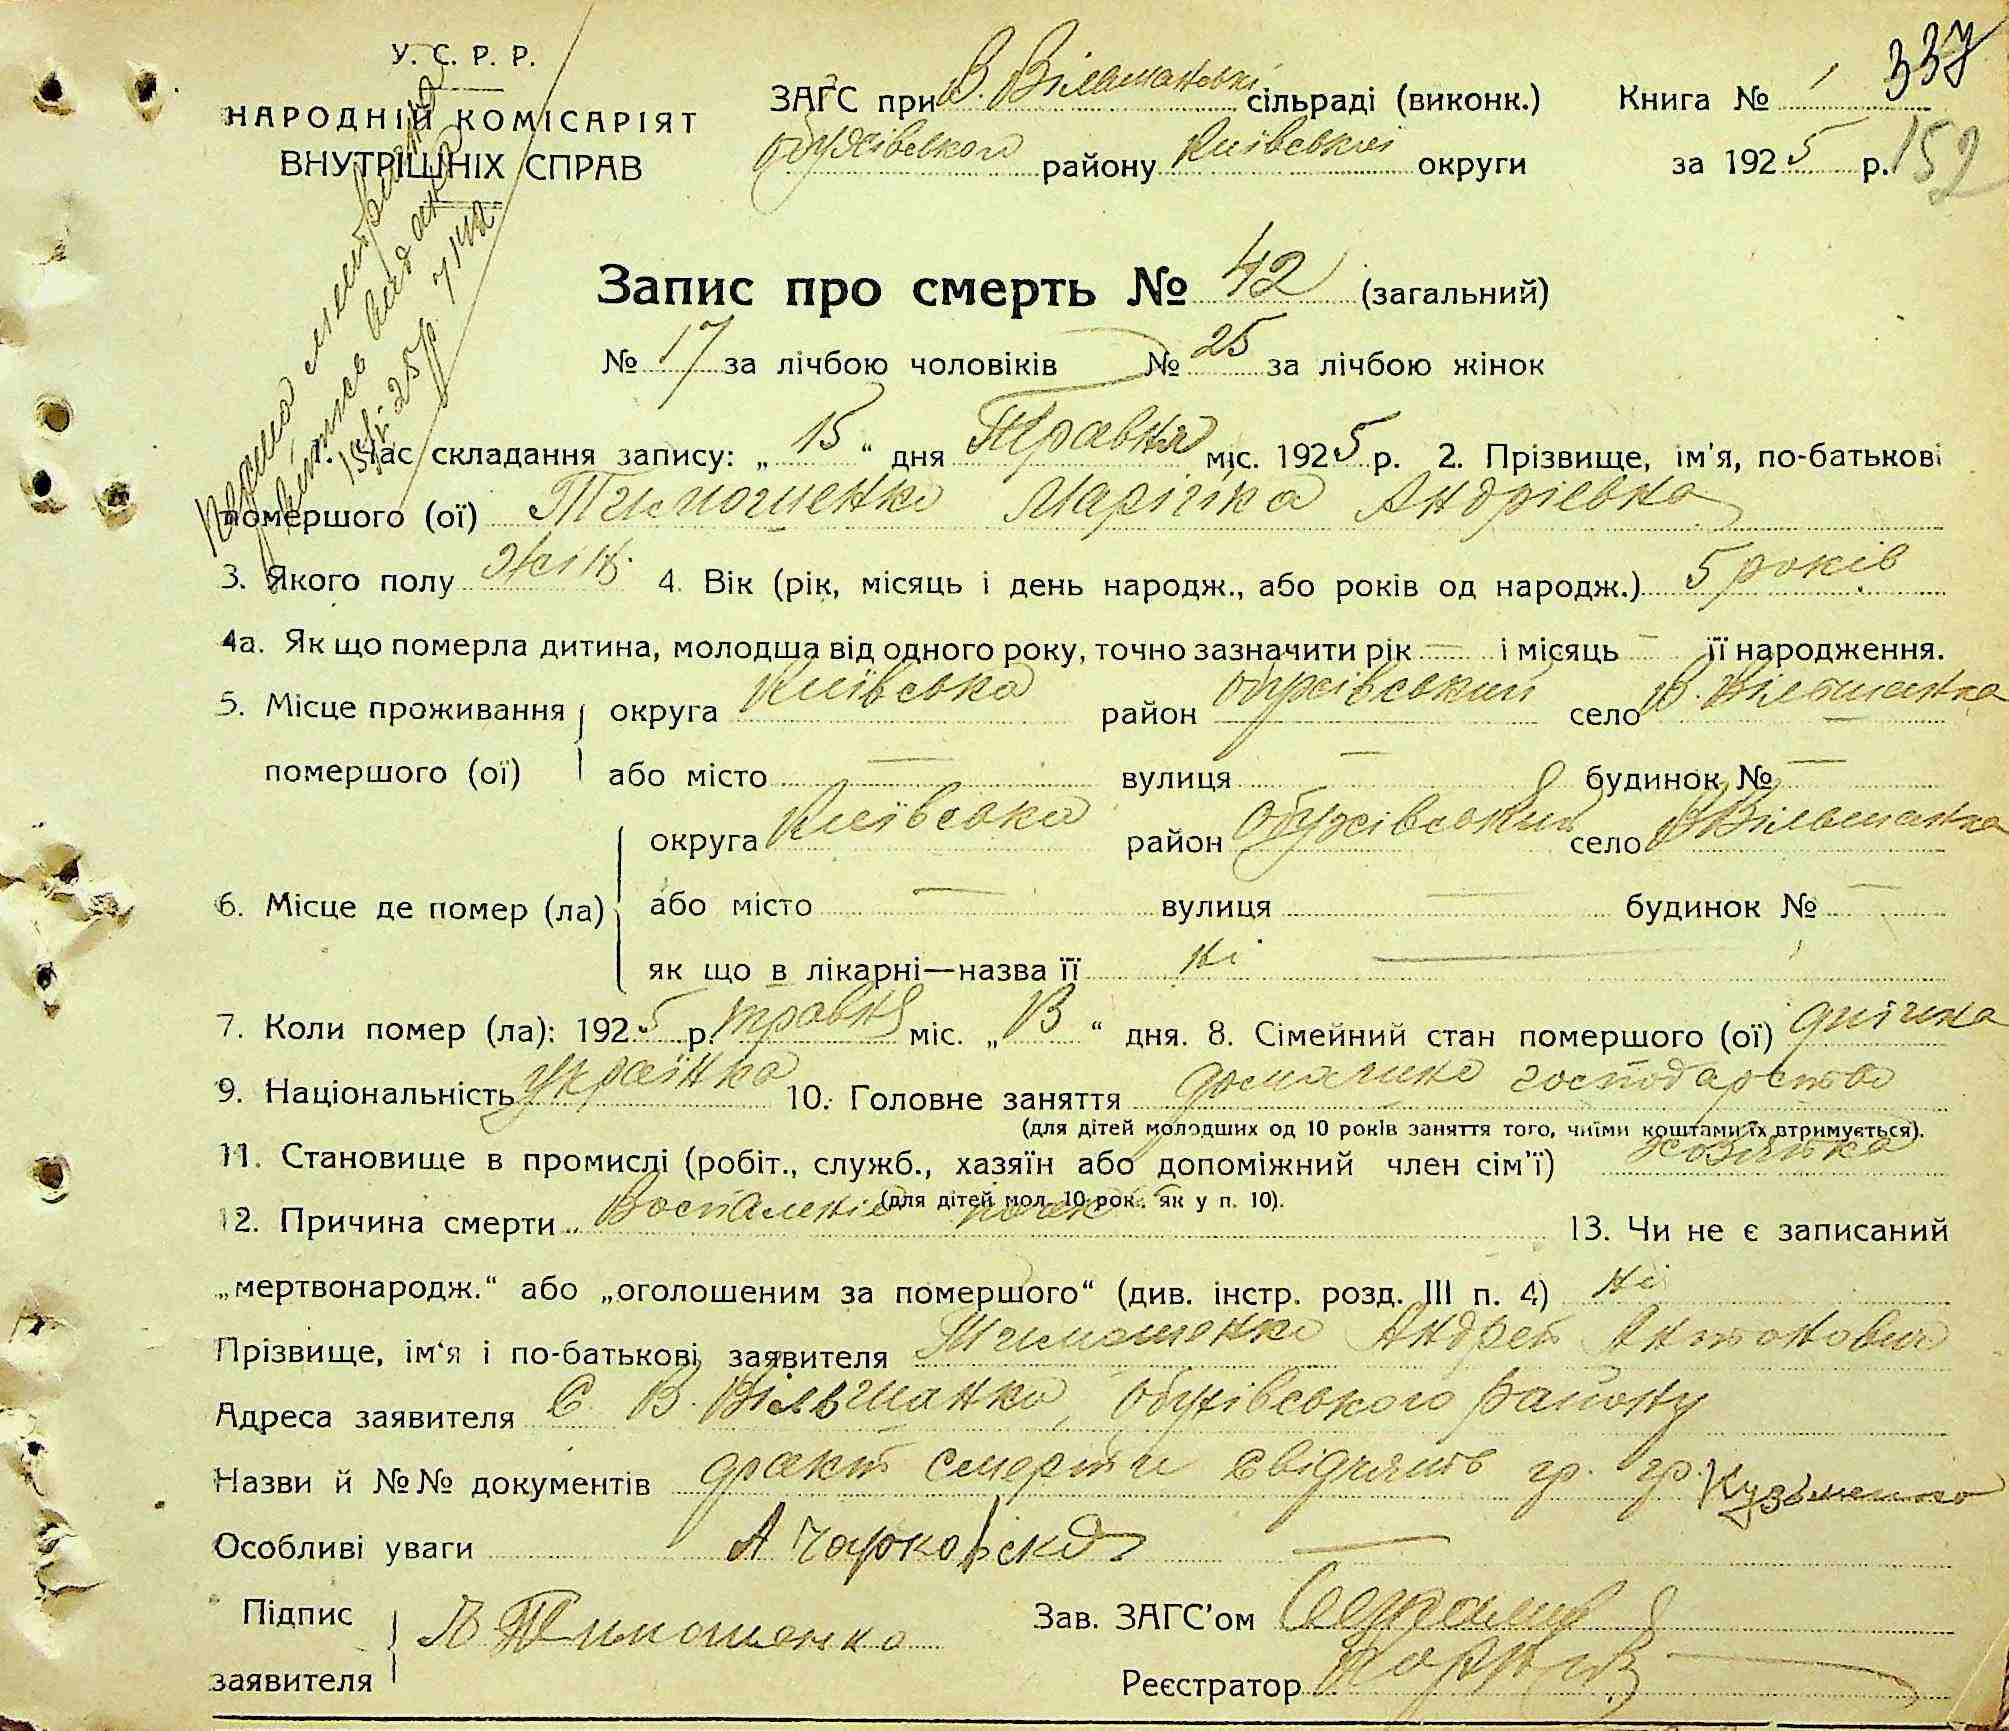 337
У. С. Р. Р.
НАРОДНІЙ КОМІСАРІЯТ
ВНУТРІШНІХ СПРАВ
ЗАГС при В. Вільшанській сільраді (виконк.)
Обухівського району Київської округи
Книга № 1
за 1925 р. 152
Запис про смерть № 42 (загальний)
№ 17 за лічбою чоловіків № 25 за лічбою жінок
1. Час складання запису: „ 15 “ дня Травня міс. 1925 р. 2. Прізвище, ім'я, по-батькові
помершого (ої) Тимошенко Марійка Андріевна
3. Якого полу жін. 4. Вік (рік, місяць і день народж., або років од народж.) 5 років
4а. Як що померла дитина, молодща від одного року, точно зазначити рік — і місяць — її народження.
5. Місце проживання округа Київська район Обухівський село В. Вільшанка
помершого (ої) або місто — вулиця — будинок № —
округа Київська район Обухівський село В Вільшанка
6. Місце де помер (ла) або місто — вулиця — будинок № —
як що в лікарні—назва її ні —
7. Коли помер (ла): 1925 р. травня міс. „ 13 “ дня. 8. Сімейний стан помершого (ої)
9. Національність українка 10. Головне заняття домашне господарство
(для дітей молодших од 10 років заняття того, чиїми коштами їх втримується).
11. Становище в промислі (робіт., служб., хазяїн або допоміжний член сім'ї) хозяйка
(для дітей мол. 10 рок. як у п. 10).
12. Причина смерти Воспаление почек 13. Чи не є записаний
„мертвонародж.“ або „оголошеним за помершого“ (див. інстр. розд. III п. 4) ні
Прізвище, ім'я і по-батькові заявителя Тимошенко Андрей Антонович
Адреса заявителя С. В. Вільшанка, Обухівського району
Назви й №№ документів факт смерти свідчять гр. гр. Кузьменко
Особливі уваги А Чарковска —
Підпис
заявителя Тимошенко
Зав. ЗАГС'ом
Реєстратор